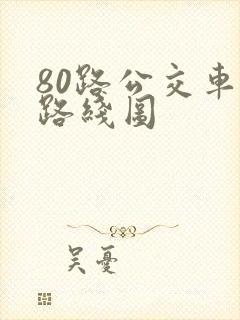 80路公交車
路綫圖
吴憂